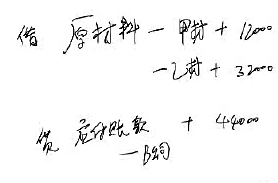 借 原材料一甲材 + 12000
一乙材 + 32000
贷 应付账款 + 44000
一B公司